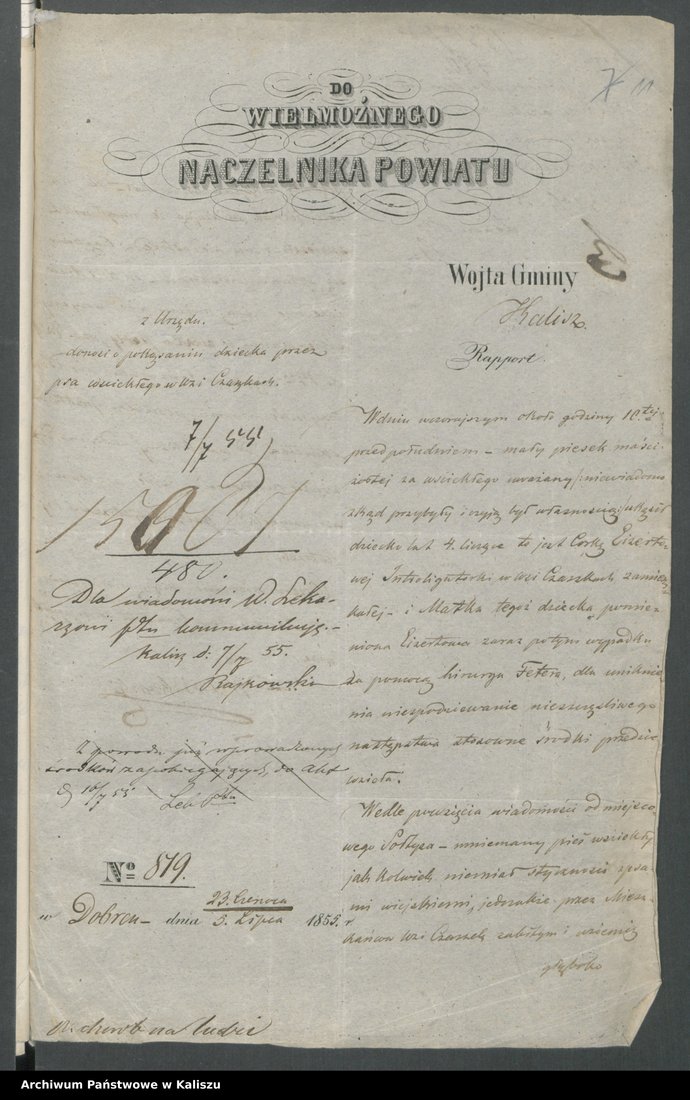 DO
WIELMOŻNEGO
NACZELNIKA POWIATU
11
Wojta Gminy
Kalisz
Rapport
z Urzędu.
donosi o pokąsaniu dziecka przez
psa wściekłego w Wsi Czaszkach.
7/7 55
480.
Dla wiadomości W. Leka-
rzowi Ptu kommunikuję.-
Kalisz d. 7/7 55.
Rajkowski
Z powodu już wprowadzonych
środków zapobiegających, do Akt
d 10/7 55
Lek Ptu
No 819.
w Dobrcu - dnia 23. Czerwca
5. Lipca 1855. r
W dniu wczorajszym około godziny 10tej
przed południem - mały piesek maści
żółtej za wściekłego uważany /: niewiadomo
zkąd przybyły i czyją był własnością :/ ukąsił
dziecko lat 4. liczące to jest Corkę Eizerto-
wej Introligatorki w Wsi Czaszkach zamiesz-
kałej - i Matka tegoż dziecka pomie-
niona Eizertowa zaraz po tym wypadku
za pomocą hirurga Fetera, dla uniknie-
nia niespodziewanie nieszczęśliwego
następstwa stosowne środki przedsię-
wzieła.
Wedle powzięcia wiadomości od miejsco-
wego Sołtysa - mniemany pies wściekły
jak kolwiek niemiał styczności z psa-
mi wiejskiemi, jednakże przez Miesz-
kańców Wsi Czaszek zabitym i w ziemię
głęboko
chorob na ludzie
Archiwum Państwowe w Kaliszu